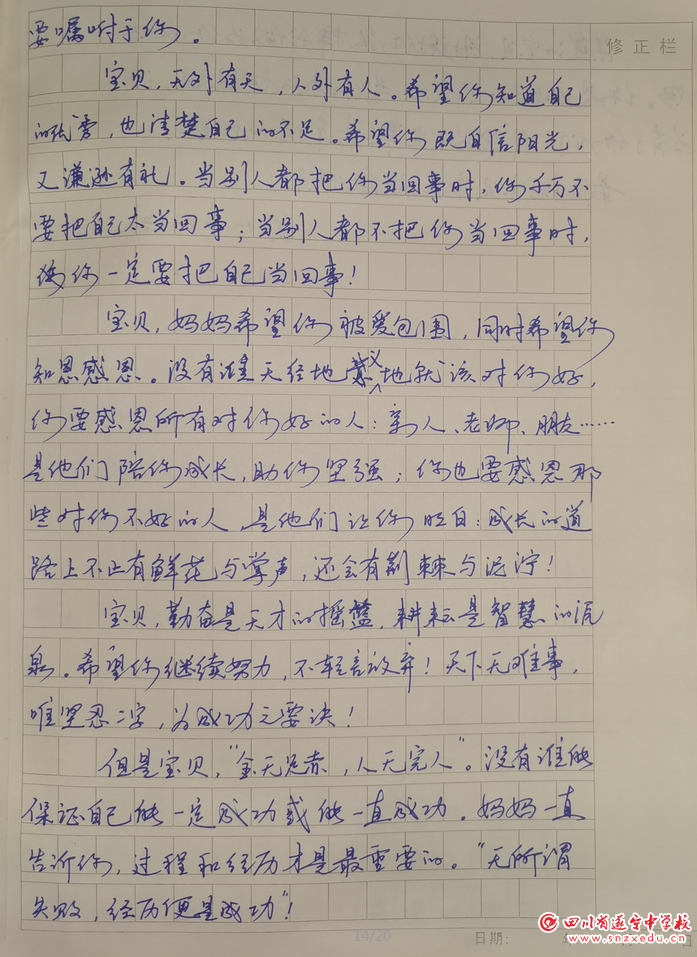 要嘱咐于你。
修正栏
宝贝，天外有天，人外有人。希望你知道自己
的优秀，也清楚自己的不足。希望你既自信阳光，
又谦逊有礼。当别人都把你当回事时，你千万不
要把自己太当回事；当别人都不把你当回事时，
你一定要把自己当回事！
宝贝，妈妈希望你被爱包围，同时希望你
知恩感恩。没有谁天经地义地就该对你好，
你要感恩所有对你好的人：亲人、老师、朋友……
是他们陪你成长，助你坚强；你也要感恩那
些对你不好的人，是他们让你明白：成长的道
路上不止有鲜花与掌声，还会有荆棘与泥泞！
宝贝，勤奋是天才的摇篮，耕耘是智慧的源
泉。希望你继续努力，不轻言放弃！天下无难事，
唯坚忍二字，为成功之要诀！
但是宝贝，“金无足赤，人无完人”。没有谁能
保证自己能一定成功或能一直成功。妈妈一直
告诉你，过程和经历才是最重要的。“无所谓
失败，经历便是成功”！
14/20
日期：
四川省遂宁中学校
www.snzxedu.cn